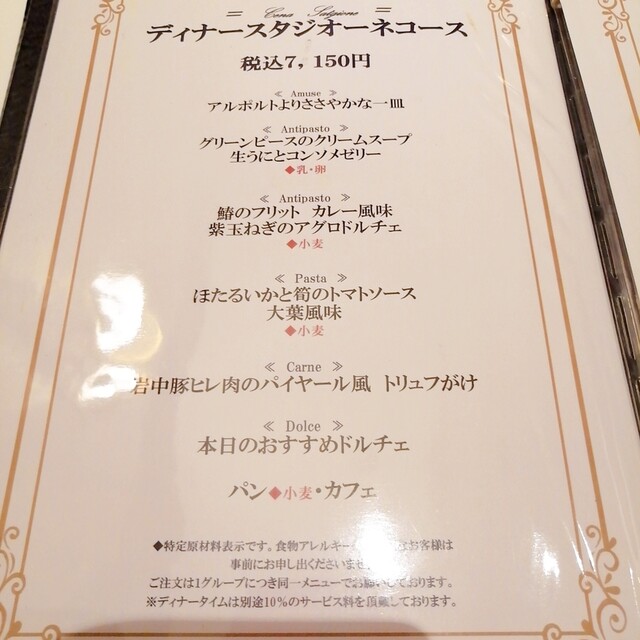 Cena Stagione
ディナースタジオーネコース
税込7,150円
≪ Amuse ≫
アルポルトよりささやかな一皿
≪ Antipasto ≫
グリーンピースのクリームスープ
生うにとコンソメゼリー
◆乳・卵
≪ Antipasto ≫
鰆のフリット カレー風味
紫玉ねぎのアグロドルチェ
◆小麦
≪ Pasta ≫
ほたるいかと筍のトマトソース
大葉風味
◆小麦
≪ Carne ≫
岩中豚ヒレ肉のパイヤール風 トリュフがけ
≪ Dolce ≫
本日のおすすめドルチェ
パン◆小麦・カフェ
◆特定原材料表示です。食物アレルギー なお客様は
事前にお申し出くださいませ
ご注文は1グループにつき同一メニューでお願いしております。
※ディナータイムは別途10%のサービス料を頂戴しております。